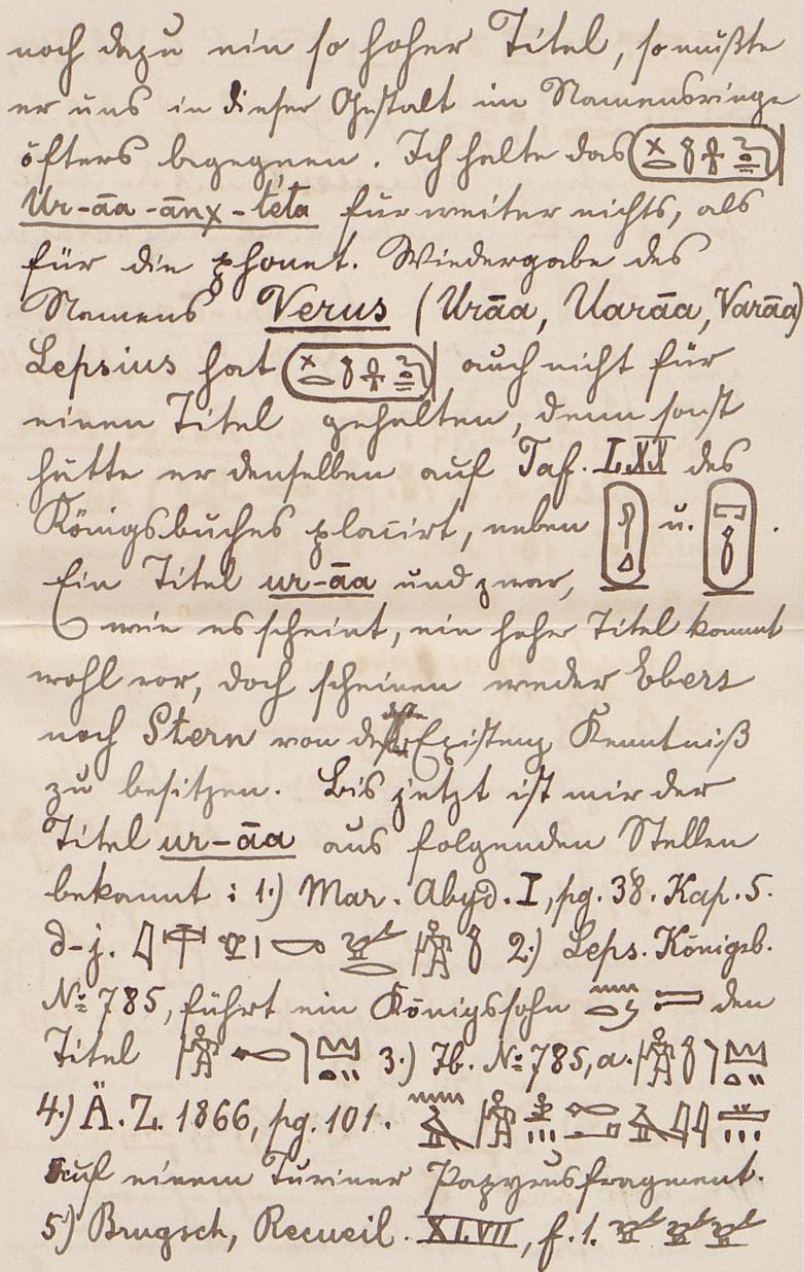 noch dazu ein so hoher Titel, so müßte
er uns in dieser Gestalt im Namensringe
öfters begegnen. Ich halte das
Ur-āa-ānχ-téta für weiter nichts, als
für die phonet. Wiedergabe des
Namens Verus (Urāa, Uarāa, Varāa)
Lepsius hat auch nicht für
einen Titel gehalten, denn sonst
hätte er denselben auf Taf. LXX des
Königsbuches placirt, neben u. .
Ein Titel ur-āa und zwar,
wie es scheint, ein hoher Titel kommt
wohl vor, doch scheinen weder Ebers
noch Stern von Existenz Kenntniß
zu besitzen. Bis jetzt ist mir der
Titel ur-āa aus folgenden Stellen
bekannt: 1.) Mar. Abyd. I, pg. 38. Kap. 5.
d-j. 2.) Leps. Königsb.
No: 785, führt ein Königssohn den
Titel 3.) Ib. No: 785, a.
4.) Ä. Z. 1866, pg. 101.
auf einem Turiner Papyrusfragment.
5) Brugsch, Recueil. XLVII, f. 1.